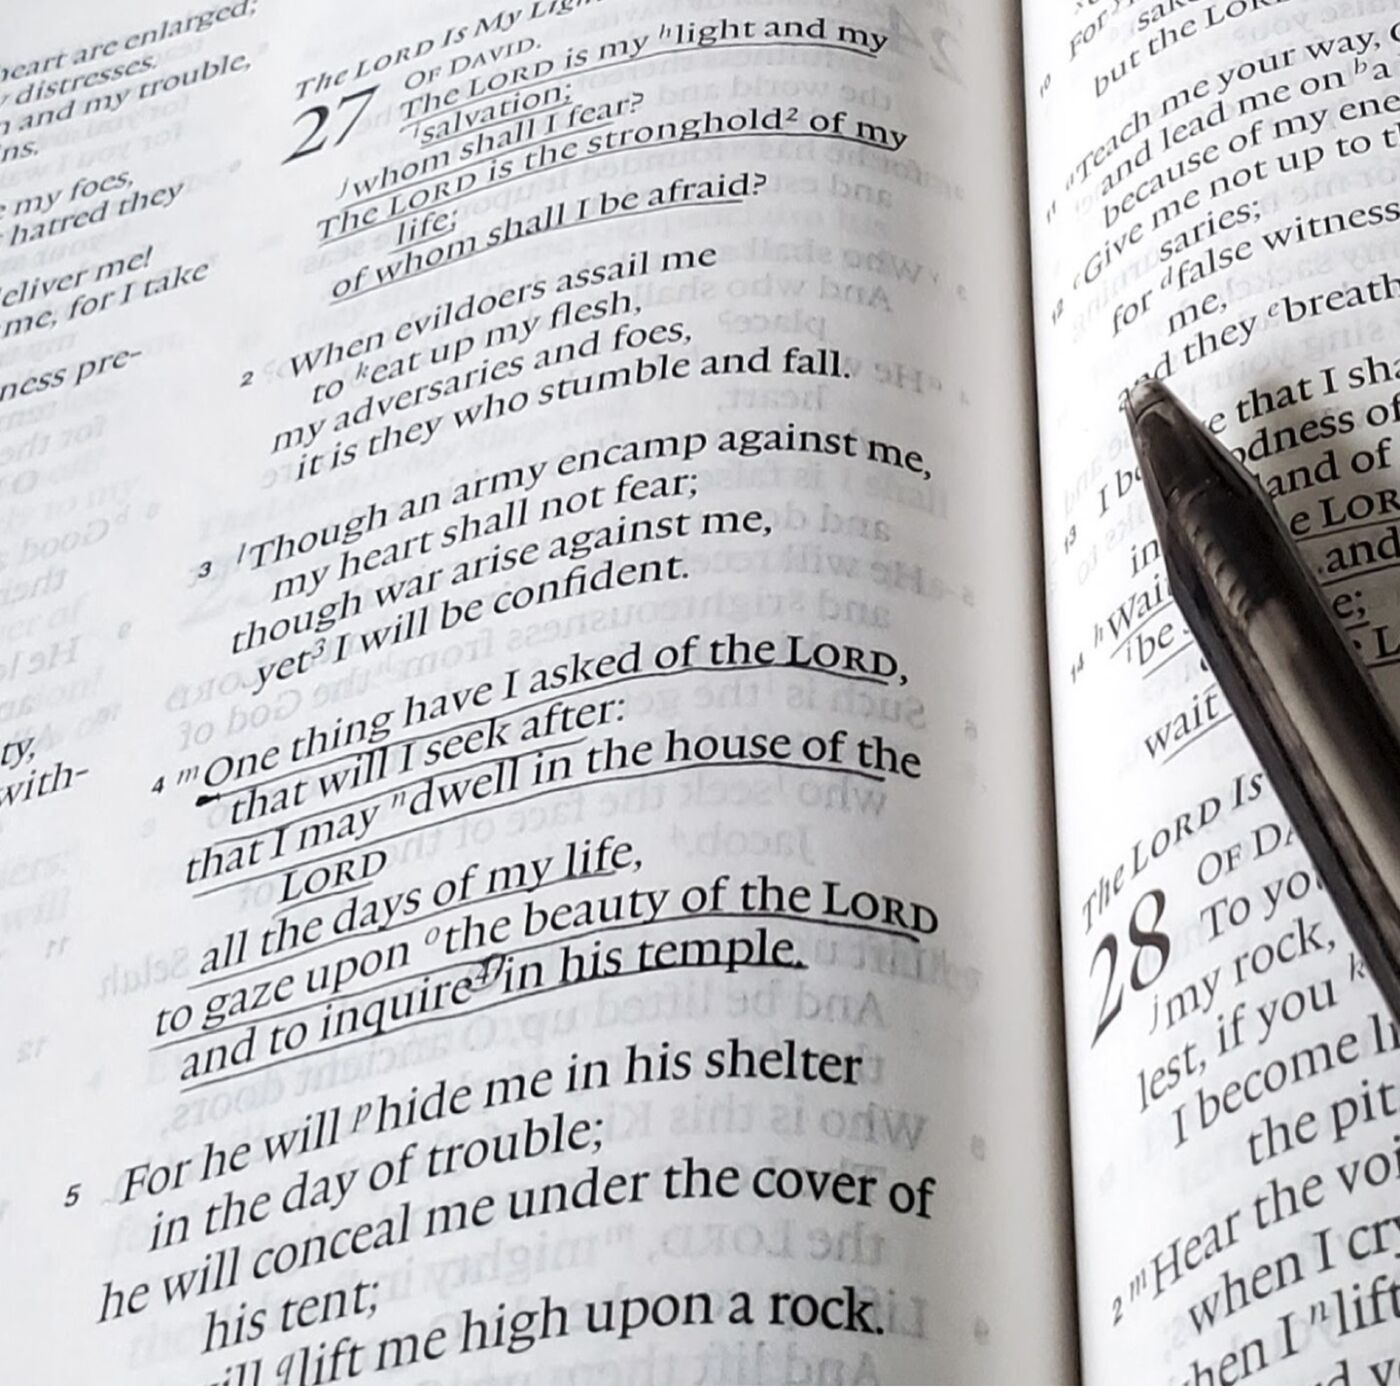 heart are enlarged;
distresses.
and my trouble,
my foes,
hatred they
eliver me!
me, for I take
ness pre-
ty,
with-
The LORD Is My
OF DAVID.
27 The LORD is my hlight and my
isalvation;
jwhom shall I fear?
The LORD is the stronghold2 of my
life;
of whom shall I be afraid?
2 When evildoers assail me
to keat up my flesh,
my adversaries and foes,
it is they who stumble and fall.
3 lThough an army encamp against me,
my heart shall not fear;
though war arise against me,
yet3 I will be confident.
4 mOne thing have I asked of the LORD,
that will I seek after:
that I may ndwell in the house of the
LORD
all the days of my life,
to gaze upon othe beauty of the LORD
and to inquire4 in his temple.
5 For he will phide me in his shelter
in the day of trouble;
he will conceal me under the cover of
his tent;
qlift me high upon a rock.
10 For
but the LORD
11 Teach me your way,
and lead me on ba
because of my ene
12 cGive me not up to
saries;
for dfalse witness
me,
and they ebreath
13 I that I sha
odness of
in land of
14 hWai e LOR
ibe and
e;
wait
The LORD Is
OF DA
28 To yo
jmy rock,
lest, if you k
I become li
the pit
2 mHear the vo
when I cry
hen I nlift